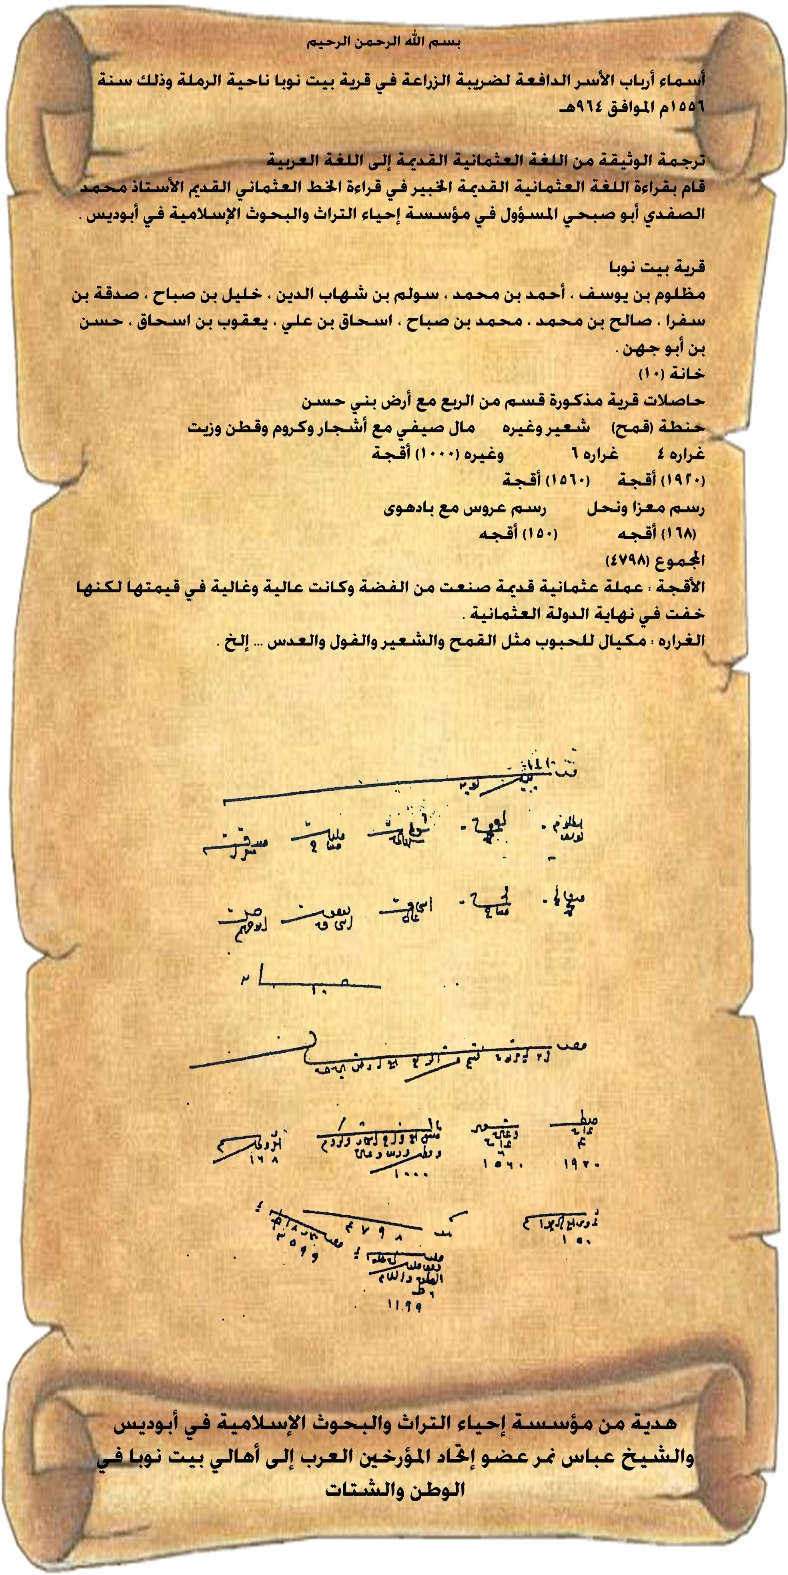 بسم الله الرحمن الرحيم
أسماء أرباب الأسر الدافعة لضريبة الزراعة في قرية بيت نوبا ناحية الرملة وذلك سنة
١٥٥٦م الموافق ٩٦٤هـ
ترجمة الوثيقة من اللغة العثمانية القديمة إلى اللغة العربية
قام بقراءة اللغة العثمانية القديمة الخبير في قراءة الخط العثماني القديم الأستاذ محمد
الصفدي أبو صبحي المسؤول في مؤسسة إحياء التراث والبحوث الإسلامية في أبوديس .
قرية بيت نوبا
مظلوم بن يوسف ، أحمد بن محمد ، سولم بن شهاب الدين ، خليل بن صباح ، صدقة بن
سفرا ، صالح بن محمد ، محمد بن صباح ، اسحاق بن علي ، يعقوب بن اسحاق ، حسن
بن أبو جهن .
خانة (١٠)
حاصلات قرية مذكورة قسم من الربع مع أرض بني حسن
حنطة (قمح) شعير وغيره مال صيفي مع أشجار وكروم وقطن وزيت
غراره ٤ غراره ٦ وغيره (١٠٠٠) أقجة
(١٩٢٠) أقجة (١٥٦٠) أقجة
رسم معزا ونحل رسم عروس مع بادهوى
(١٦٨) أقجه (١٥٠) أقجه
المجموع (٤٧٩٨)
الأقجة : عملة عثمانية قديمة صنعت من الفضة وكانت عالية وغالية في قيمتها لكنها
خفت في نهاية الدولة العثمانية .
الغراره : مكيال للحبوب مثل القمح والشعير والفول والعدس ... إلخ .
١٠
١٩٢٠ ١٥٦٠ ١٠٠٠ ١٦٨
١٥٠ ٤٧٩٨ ٣٥٩٩
١١٩٩
هدية من مؤسسة إحياء التراث والبحوث الإسلامية في أبوديس
والشيخ عباس نمر عضو إتحاد المؤرخين العرب إلى أهالي بيت نوبا في
الوطن والشتات